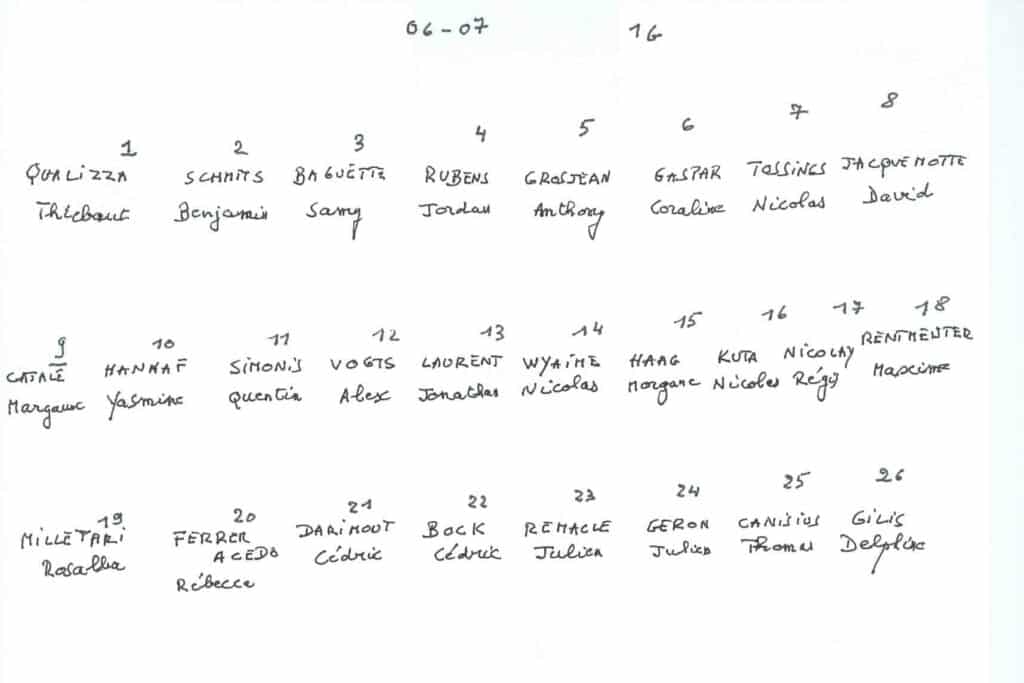 06-07 1G
1 2 3 4 5 6 7 8
QUALIZZA SCHMITS BAGUETTE RUBENS GROSJEAN GASPAR TOSSINGS JACQUEMOTTE
Thiébaut Benjamin Samy Jordan Anthony Coraline Nicolas David
9 10 11 12 13 14 15 16 17 18
CATALÉ HANNAF SIMONIS VOGTS LAURENT WYAIME HAAG KUTA NICOLAY RENTMEUTER
Margaux Yasmine Quentin Alex Jonathan Nicolas Morgane Nicolas Régis Maxime
19 20 21 22 23 24 25 26
MILLETARI FERRER DARIMOUT BOCK REMACLE GERON CANISIUS GILIS
ACEDO
Rosalba Rébecca Cédric Cédric Julien Julien Thomas Delphine